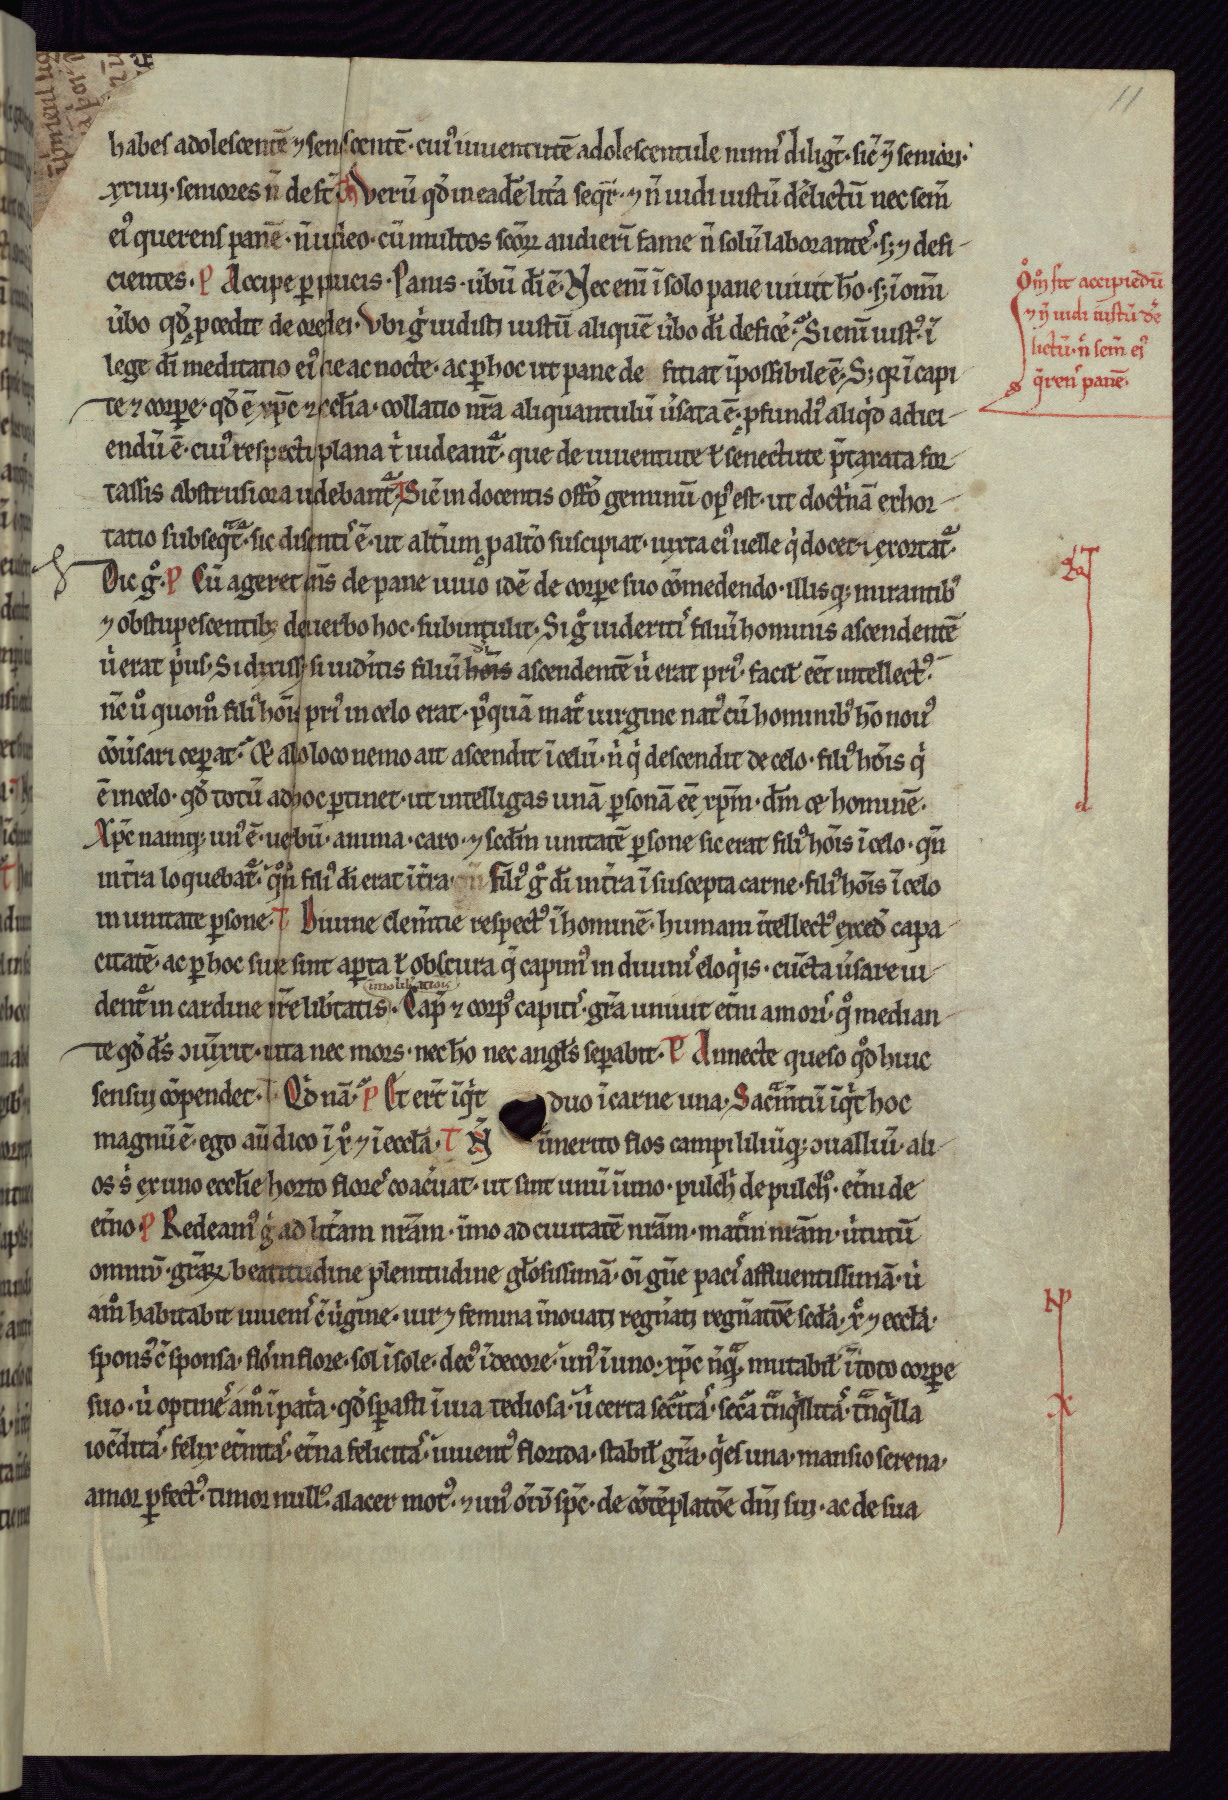 11
habes adolescentē ⁊ senescentē · cui᷒ iuuentutē adolescentule nimis diligt̄ · sic̄ ⁊ seniores
xxiiij · seniores n̄ desst̄ T Verū qd̄ in eadē litt̄a seqr̄ · ⁊ n̄ uidi iustū dēlictū nec sem̄
ei᷒ querens panē · n̄ uideo · cū multos sc̄orꝝ audierī fame n̄ solū laborantes · sꝫ ⁊ defi-
cientes · P Accipe ꝑ paucis · Panis · ūbū dī ē · Nec enī ī solo pane uiuit hō · sꝫ ī om̄i
ūbo qd̄ ꝓcedit de ore dei · Vbi gͥ uidisti iustū aliquē ūbo dī defice᷒ · Si enī iust᷒ ī
lege dī meditatio ei᷒ die ac nocte · ac ꝑ hoc ut pane de fitiat īpossibile ē · T Sꝫ qꝫ ī capi
te ⁊ corꝑe · qd̄ ē xp̄c ⁊ ecclīa · collatio nr̄a aliquantulū ūsata ē · ꝓfundi᷒ aliqͥd adici-
endū ē · cui᷒ respectu plana tͥ uideant᷑ · que de iuuentute ł senectute p̄taxata for-
tassis abstrusiora uidebant᷑ T Sic̄ in docentis offō geminū op᷒ est · ut doctͥnā exhor-
tatio subseqt᷑ · sic discentis ē · ut altūm ꝑ altō suscipiat · iuxta ei᷒ uelle qͥ docet ⁊ exortat᷑ ·
Dic gͦ · P Cū ageret dn̄s de pane uiuo idē de corꝑe suo cōmedendo · illisqꝫ mirantib᷒
⁊ obstupescentibꝫ de uerbo hoc · subintulit · Si gͦ uideritis filiū hominis ascendentē
ūͥ erat pͥus · Si dixiss; si uidītis filiū hōis ascendentē ūͥ erat pri᷒ · facił eēt intellect᷒ ·
nc̄ ūͦ quom̄ fili᷒ hōis pri᷒ in celo erat · pͥ quā mat̄ uirgine nat᷒ cū hominib᷒ hō nou᷒
cōūsari ceꝑat · Et alio loco nemo ait ascendit ī celū · nͥ qͥ descendit de celo · fili᷒ hōis qͥ
ē in celo · qd̄ totū ad hoc ꝑtinet · ut intelligas unā ꝑsonā eē xp̄m · dm̄ ⁊ hominē ·
Xp̄c namqꝫ un᷒ ē · uerbū · anima · caro · ⁊ sedm̄ unitatē ꝑsone sic erat fili᷒ hōis ī celo · qn̄
in t̄ra loquebat᷑ · qͦm̄ fili᷒ dī erat ī t̄ra · Fili᷒ gͦ dī in t̄ra ī suscepta carne · fili᷒ hōis ī celo
in unitate ꝑsone · T Diuine clem̄tie respect᷒ ī hominē · humani ītellect᷒ exced̄ capa-
citatē · ac ꝑ hoc siue sint aꝑta ł obscura q̄ capim᷒ in diuinis eloqͥis · cūcta ūsare ui-
immolationis
dent᷑ in cardine nr̄e lib̄tatis · Cap̄ ⁊ corp᷒ capitis · gr̄a univit et̄ni amoris · qͦ median-
te qd̄ ds̄ ↄiūxit · uita nec mors · nec hō nec angls̄ seꝑabit · P Annecte queso qd̄ huic
sensui cōpendet · T Qd̄ nā · P Et er̄t īqͥt duo ī carne una · Sacm̄tū īqͥt hoc
magnū ē · ego aū dico ī xͦ ⁊ ī ecclā · T N ūmerito flos campi liliūqꝫ ↄualliū · ali-
os sͥ ex uno ecclīe horto flores coac̄uat · ut sint unū ī uno · pulchͥ de pulchͦ · et̄ni de
et̄no · P Redeam᷒ gͥ ad litt̄am nr̄am · īmo ad ciuitatē nr̄am · matͥm nr̄am · ūtutū
omniū · gr̄arꝝ beatitudine plenitudine glōsissimā · oī gn̄e pacis affluentissimā · ūͥ
am̄ habitabit iuuenis c̄ ūgine · uir ⁊ femina īnouati regn̄ati regn̄atōe sedā · xͦ ⁊ ecclā ·
spons᷒ c̄ sponsa · flos in flore · sol ī sole · dec᷒ ī decore · un᷒ ī uno · xp̄c nͥqᷓ mutabił ī toto corꝑe
suo · ūͥ optines am̄ ī pat̄a · qd̄ sꝑasti ī uia tediosa · ūͥ certa sec̄itas · sec̄a tn̄qͥllitas · tn̄qͥlla
ioc̄ditas · felix et̄nitas · et̄na felicitas · iuuent᷒ florida · stabił gr̄a · qͥes una · mansio serena ·
amor ꝑfect᷒ · timor null᷒ · alacer mot᷒ · ⁊ un᷒ oīū sp̄c · de cōtēplatōe dn̄i sui · ac de sua
Qͦm̄ sit accipiēdū
⁊ n̄ uidi iustū dē
lictū · n̄ sem̄ ei᷒
q̄rens panē ·